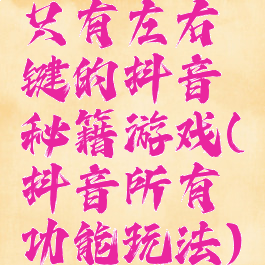 只有左右
键的抖音
秘籍游戏(
抖音所有
功能玩法)